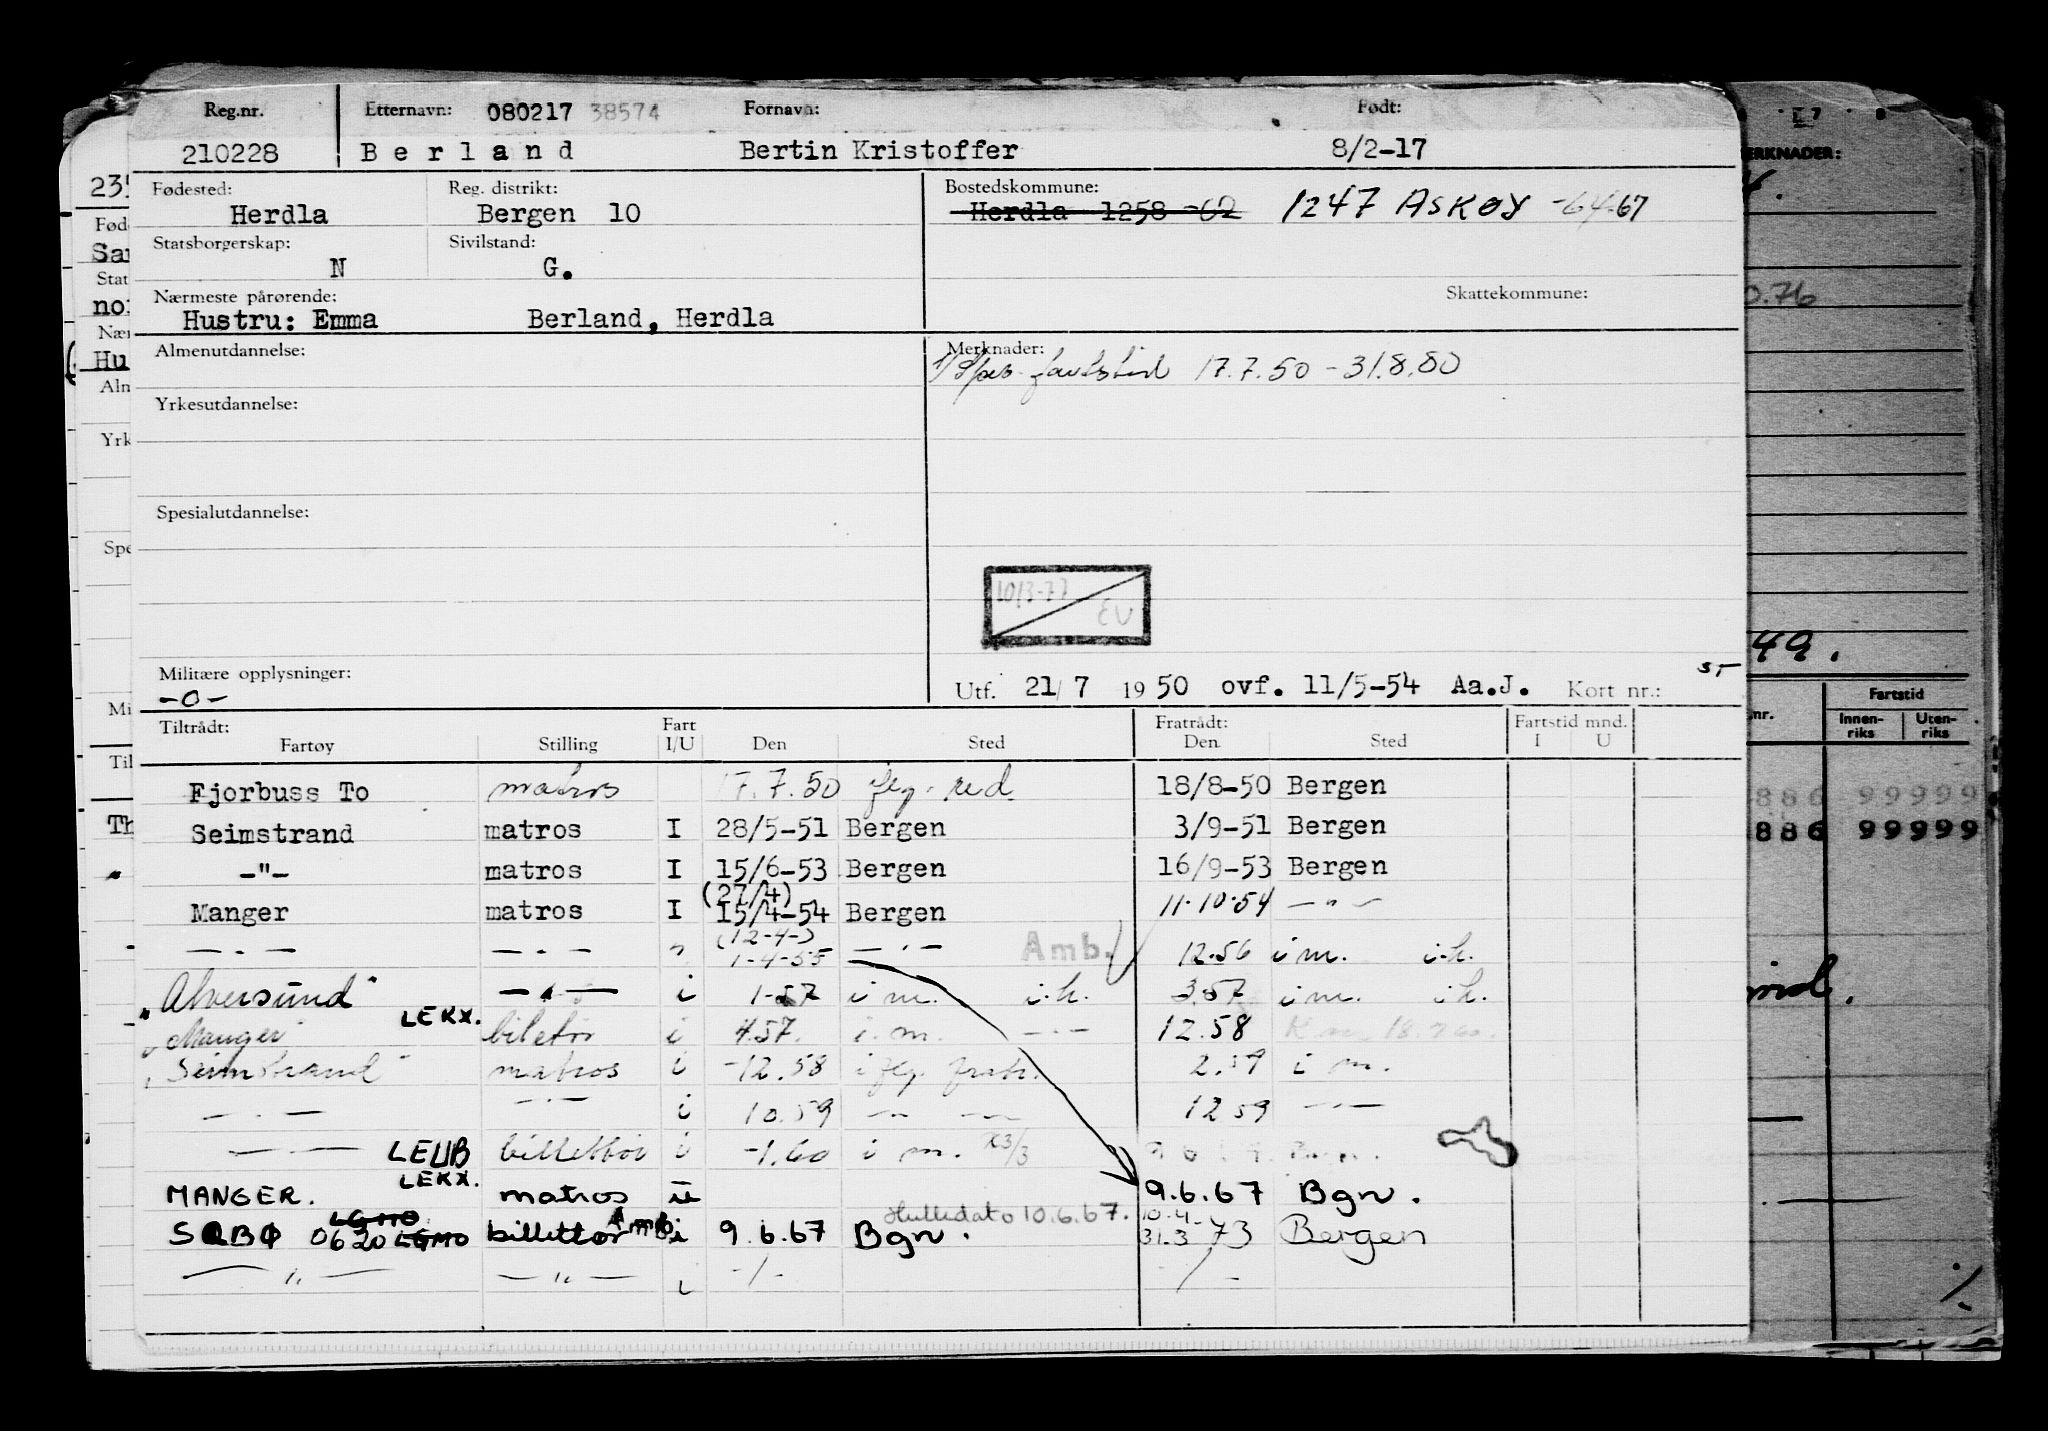 Reg.nr. Etternavn: 080217 38574 Fornavn: Født:
210228 Berland Bertin Kristoffer 8/2-17
Fødested: Reg. distrikt: Bostedskommune:
Herdla Bergen 10 Herdla 1258 -62 1247 ASKØY -64-67
Statsborgerskap: Sivilstand:
N G.
Nærmeste pårørende: Skattekommune:
Hustru: Emma Berland, Herdla
Almenutdannelse: Merknader:
fartstid 17.7.50 - 31.8.80
Yrkesutdannelse:
Spesialutdannelse:
10/3-77 EU
Militære opplysninger:
-0- Utf. 21/7 1950 ovf. 11/5-54 Aa.J. Kort nr.:
Tiltrådt: Fart Fratrådt: Fartstid mnd.
Fartøy Stilling I/U Den Sted Den Sted I U
Fjorbuss To matros 17.7.50 flg. red. 18/8-50 Bergen
Seimstrand matros I 28/5-51 Bergen 3/9-51 Bergen
-"- matros I 15/6-53 Bergen 16/9-53 Bergen
(27/4)
Manger matros I 15/4-54 Bergen 11.10.54 - " -
(12-4-)
- " - - " - " 1-4-55 - " - Amb. 12.56 i m. i.h.
"Alversund" - " - i 1-57 i m. i.h. 3.57 i m. i h.
LEKX.
"Manger" biletør i 4.57. i. m. - " - 12.58
"Seimstrand" matros i -12.58 i flg. fratr. 2.59 i m.
- " - - " - i 10.59 - " - 12 59 - " -
- " - LEUB billettør i -1.60 i m. K3/3
LEKX.
MANGER. matros i 9.6.67 Bgn.
LGMO Hulledato 10.6.67. 10.4
SÆBØ 0620 LGMO billettør Amb i 9.6.67 Bgn. 31.3-73 Bergen
- " - - " - i -/- -/-
ERKNADER:
0.76
49.
Fartstid
nr. Innen-riks Uten-riks
886 99999
886 99999